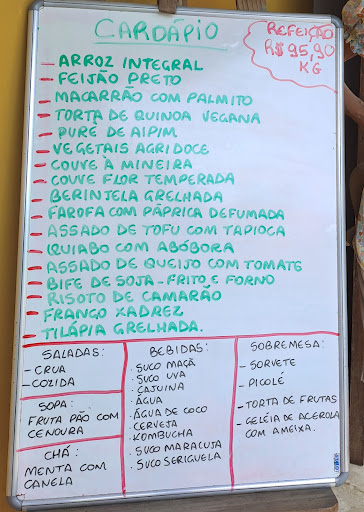 CARDÁPIO
REFEIÇÃO
R$ 95,90
KG
- ARROZ INTEGRAL
- FEIJÃO PRETO
- MACARRÃO COM PALMITO
- TORTA DE QUINOA VEGANA
- PURÊ DE AIPIM
- VEGETAIS AGRIDOCE
- COUVE À MINEIRA
- COUVE FLOR TEMPERADA
- BERINJELA GRELHADA
- FAROFA COM PÁPRICA DEFUMADA
- ASSADO DE TOFU COM TAPIOCA
- QUIABO COM ABÓBORA
- ASSADO DE QUEIJO COM TOMATE
- BIFE DE SOJA - FRITO E FORNO
- RISOTO DE CAMARÃO
- FRANGO XADREZ
- TILÁPIA GRELHADA.
SALADAS:
- CRUA
- COZIDA
SOPA:
FRUTA PÃO COM
CENOURA
CHÁ:
MENTA COM
CANELA
BEBIDAS:
SUCO MAÇÃ
SUCO UVA
CAJUINA
ÁGUA
ÁGUA DE COCO
CERVEJA
KOMBUCHA
SUCO MARACUJA
SUCO SERIGUELA
SOBREMESA:
- SORVETE
- PICOLÉ
- TORTA DE FRUTAS
- GELÉIA DE ACEROLA
COM AMEIXA.